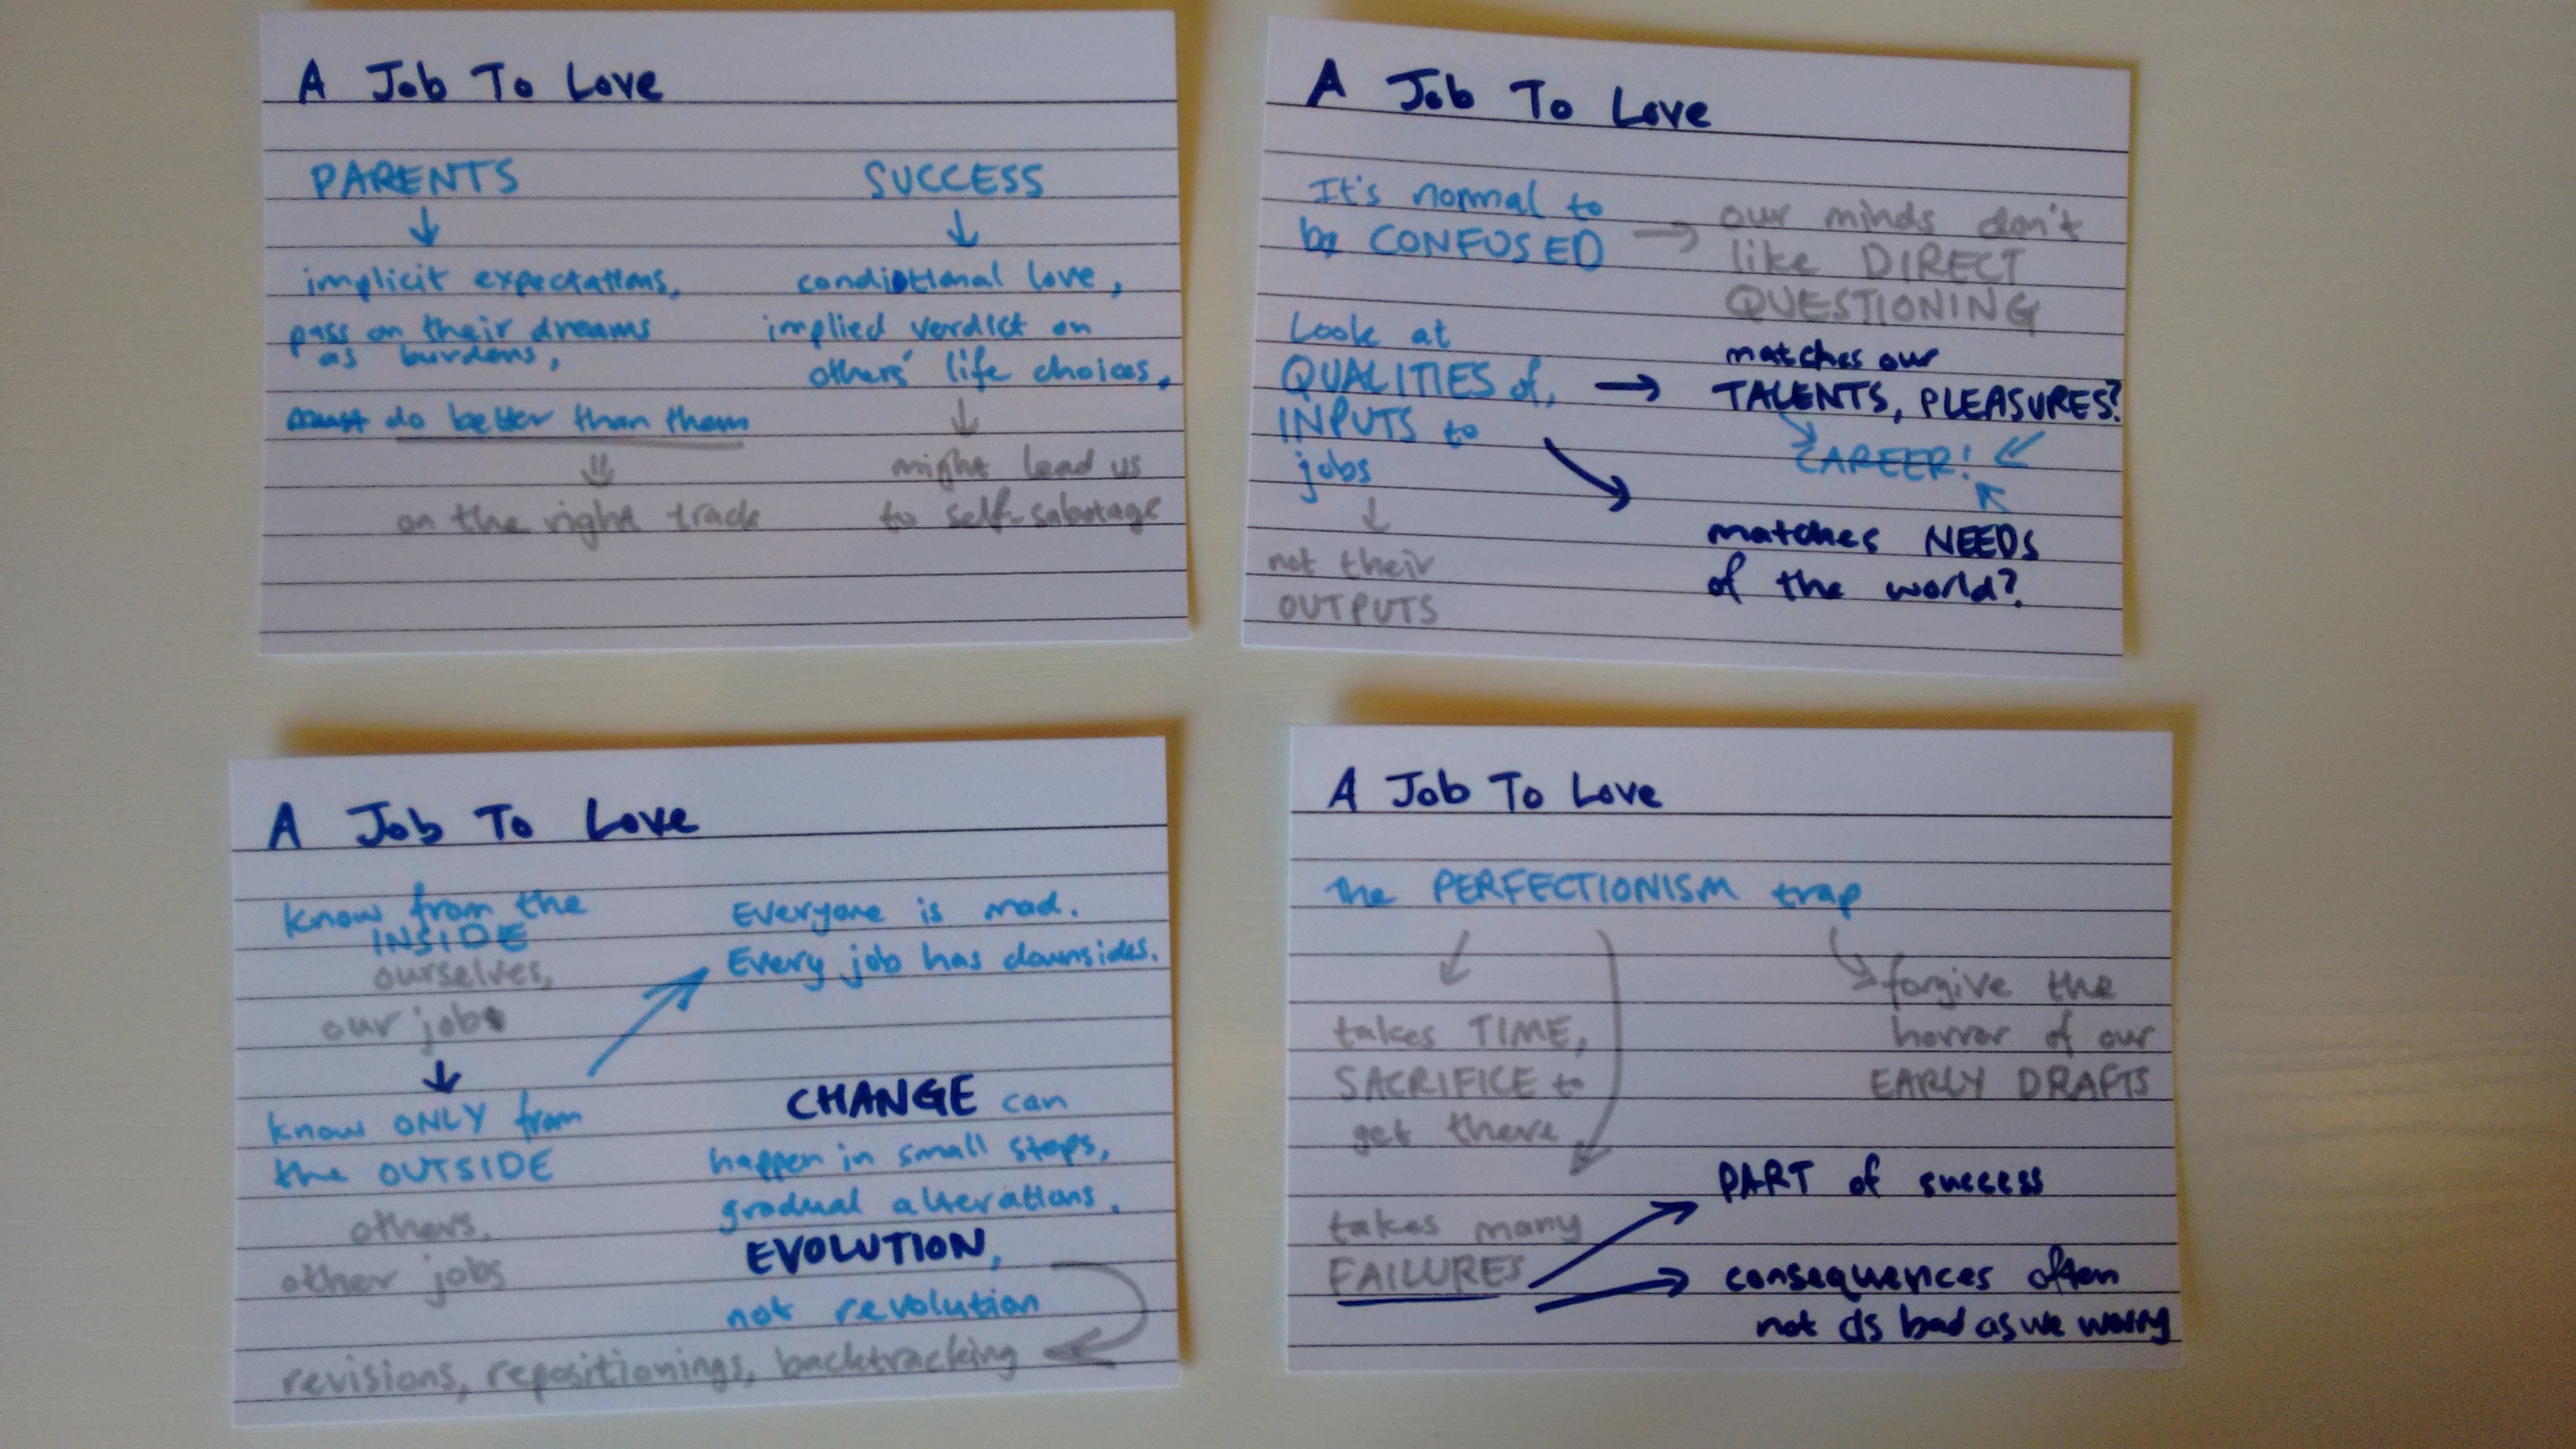 A Job To Love
PARENTS
↓
implicit expectations,
pass on their dreams
as burdens,
must do better than them
⇓
on the right track
SUCCESS
↓
conditional love,
implied verdict on
others' life choices,
↓
might lead us
to self-sabotage
A Job To Love
It's normal to
be CONFUSED
→ our minds don't
like DIRECT
QUESTIONING
Look at
QUALITIES of,
INPUTS to
jobs
↓
not their
OUTPUTS
→ matches our
TALENTS, PLEASURES?
CAREER!
matches NEEDS
of the world?
A Job To Love
know from the
INSIDE
ourselves,
our jobs
↓
know ONLY from
the OUTSIDE
others,
other jobs
Everyone is mad.
Every job has downsides.
CHANGE can
happen in small steps,
gradual alterations.
EVOLUTION,
not revolution
revisions, repositionings, backtracking
A Job To Love
the PERFECTIONISM trap
takes TIME,
SACRIFICE to
get there
takes many
FAILURES
forgive the
horror of our
EARLY DRAFTS
PART of success
consequences often
not as bad as we worry